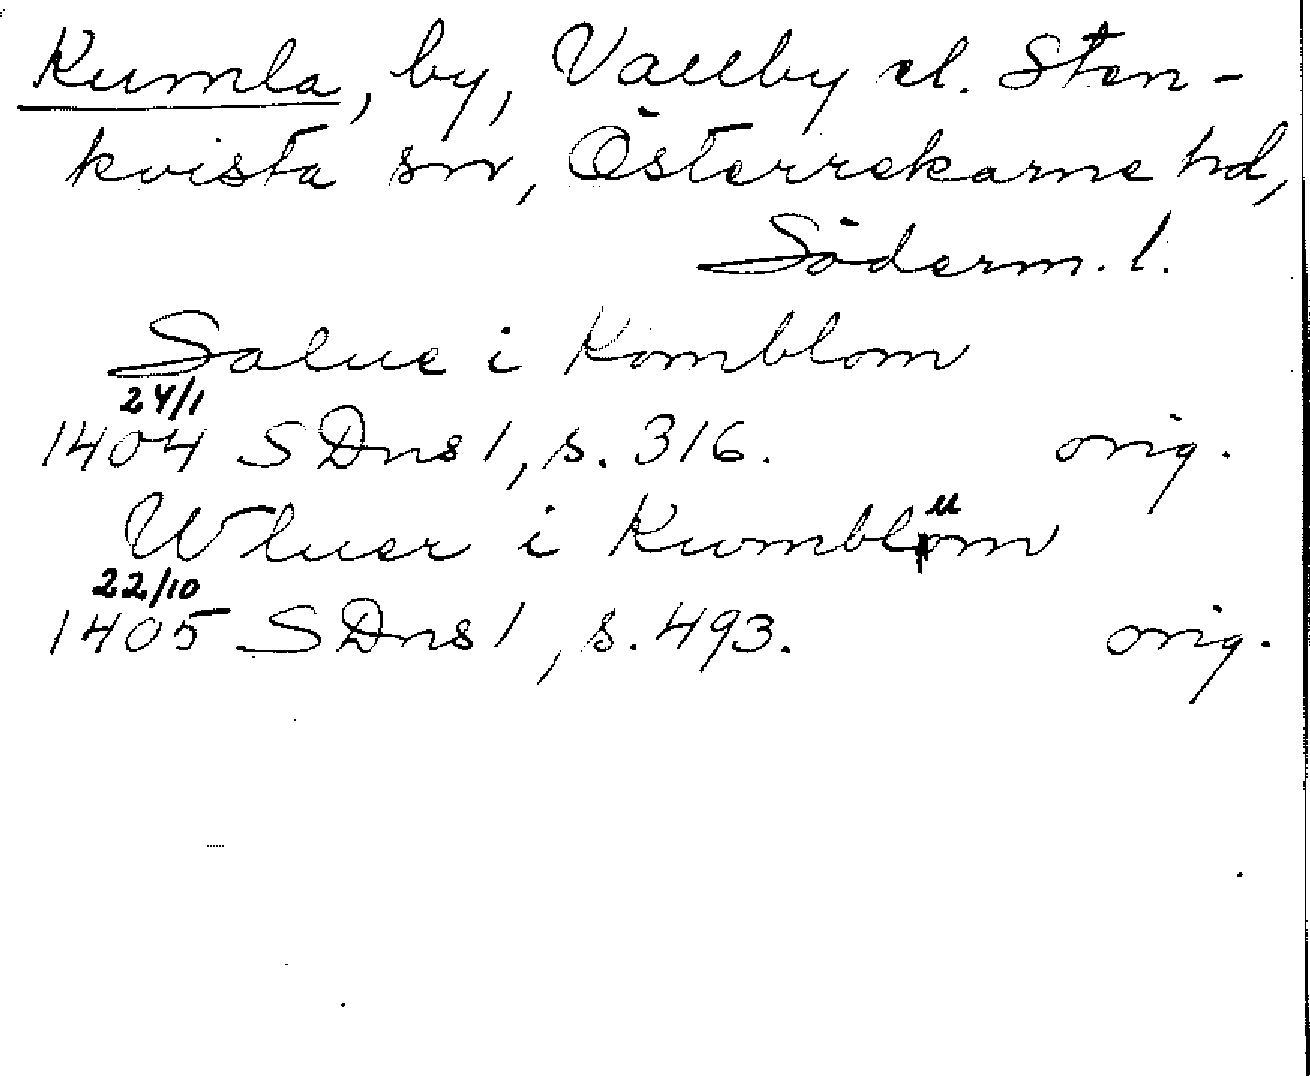 Kumla, by, Vallby el. Sten-
kvista sn, Österrekarne hd,
Söderm. l.
Salue i Komblom
24/1
1404 SDns 1, s. 316. orig.
u
Wluer i Kumblom
22/10
1405 SDns 1, s. 493. orig.